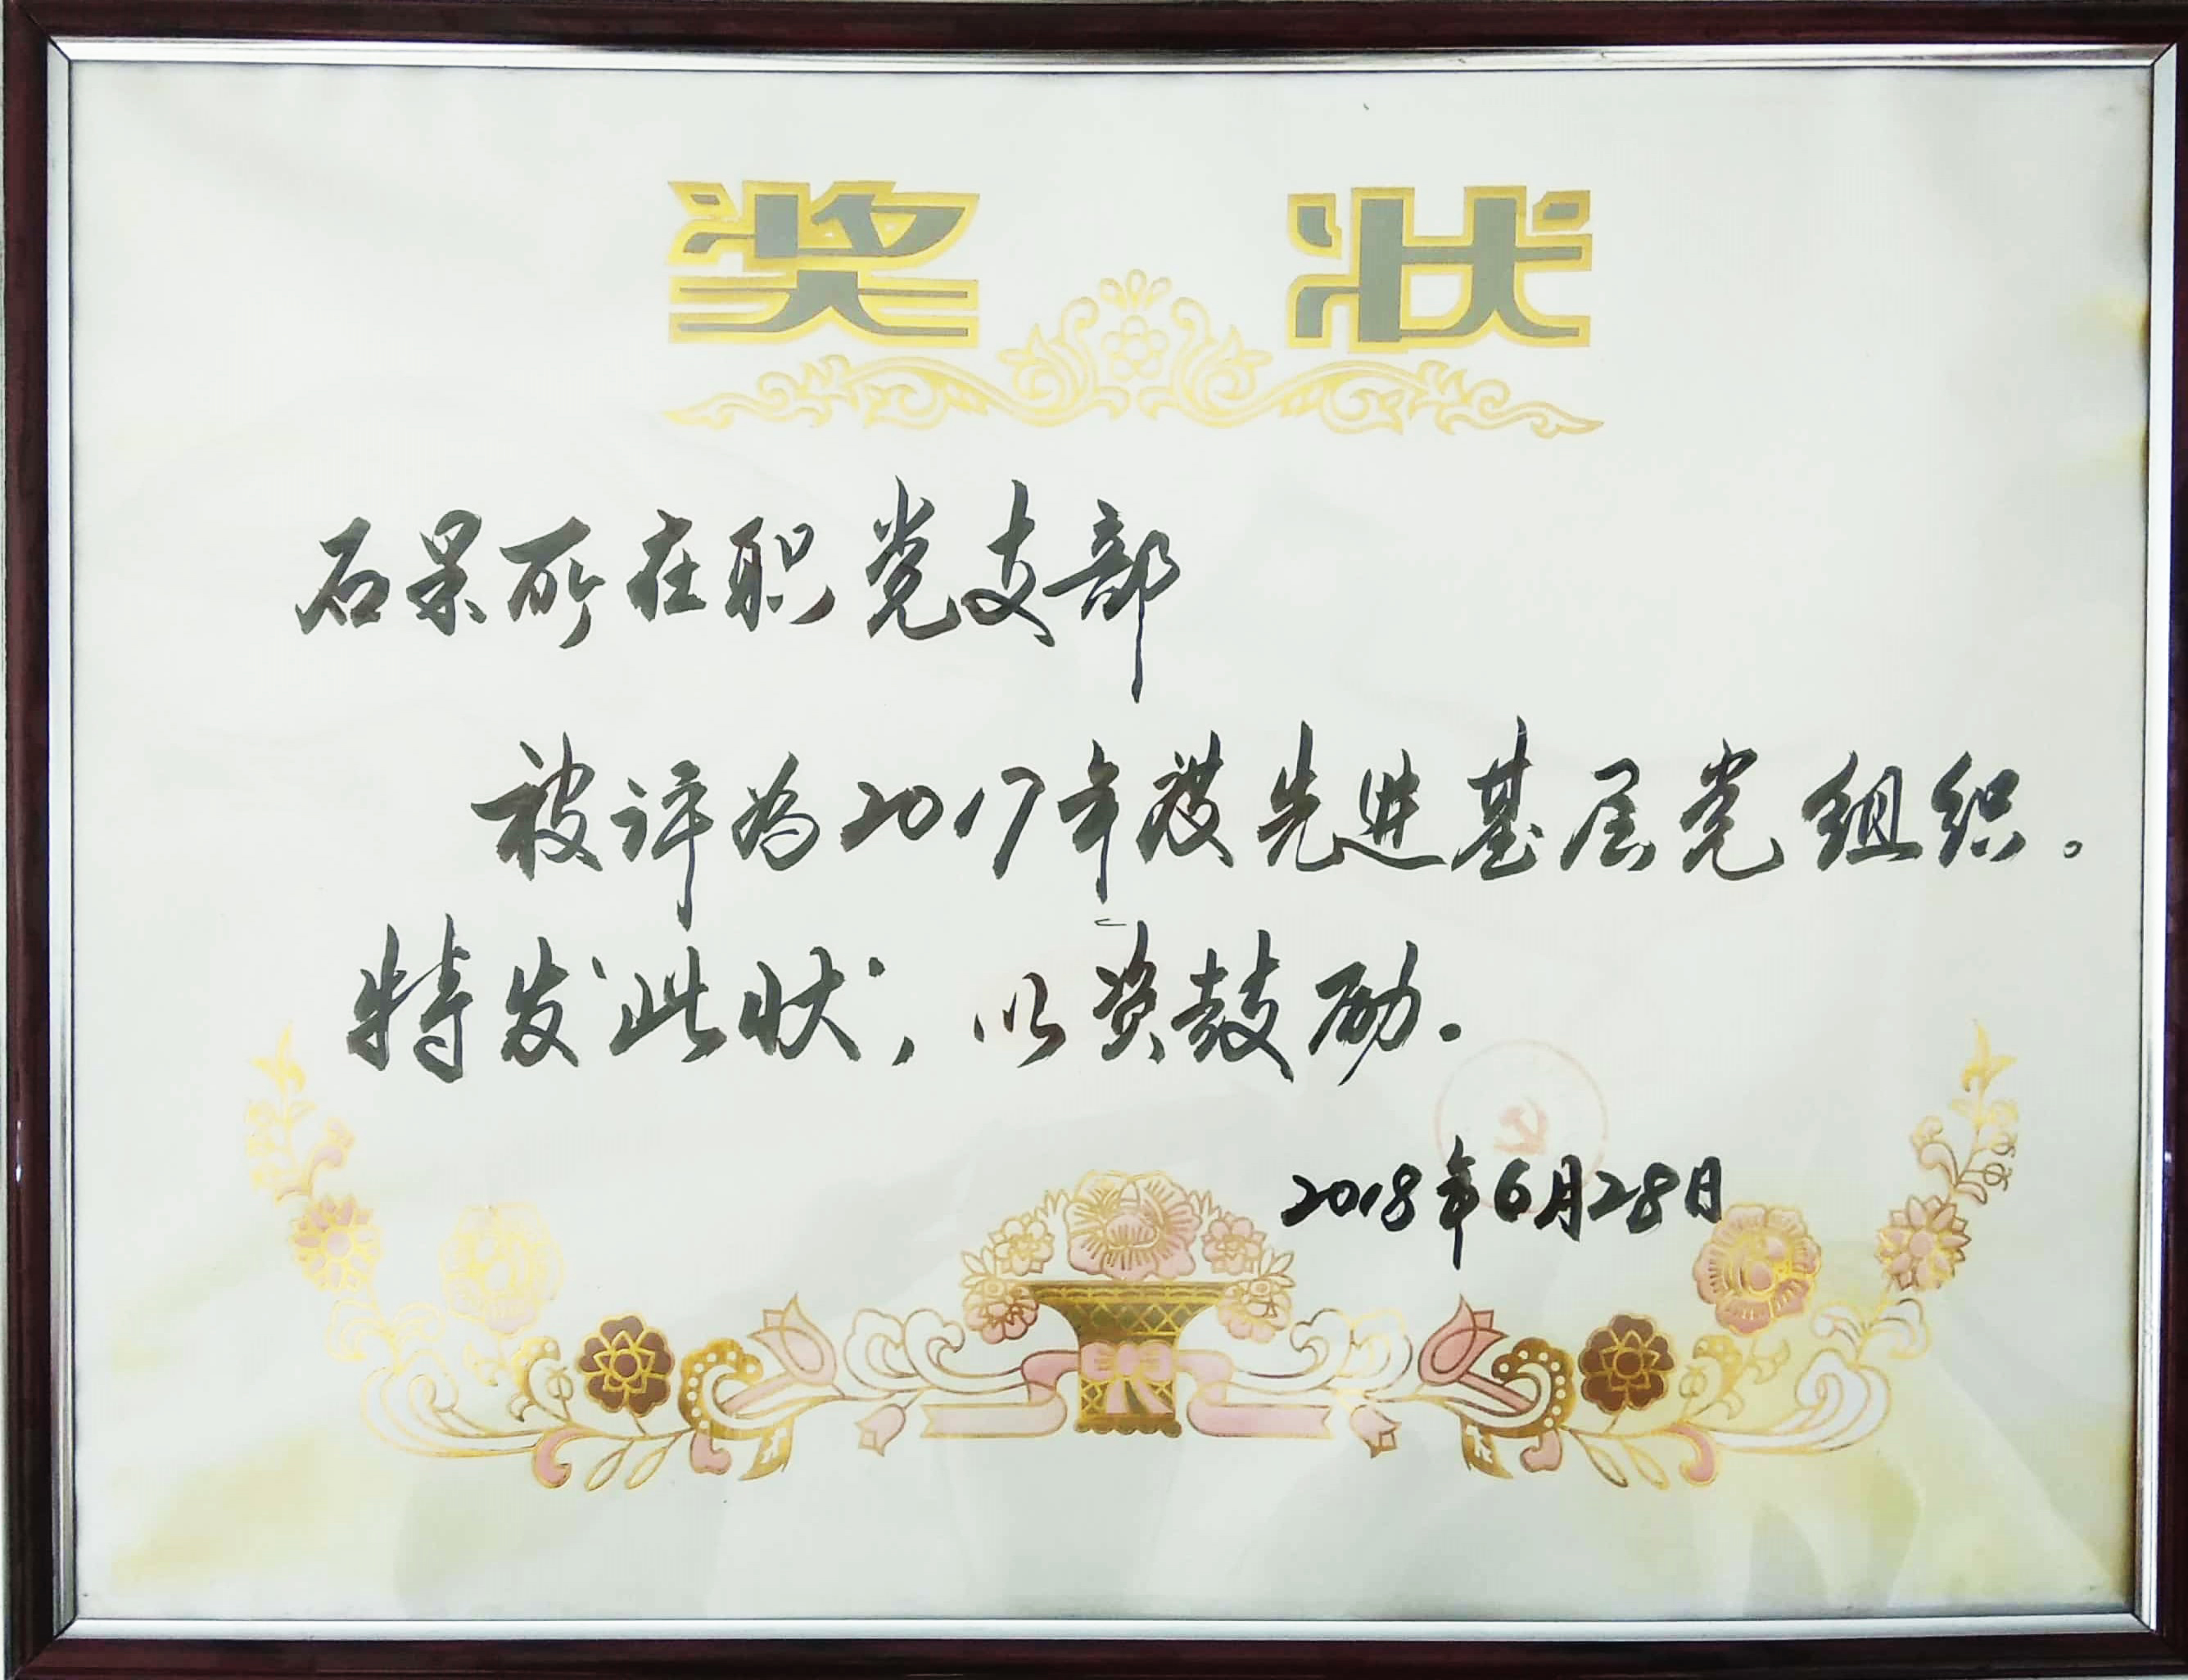 奖状
石果所在职党支部
被评为2017年度先进基层党组织。
特发此状，以资鼓励.
2018年6月28日